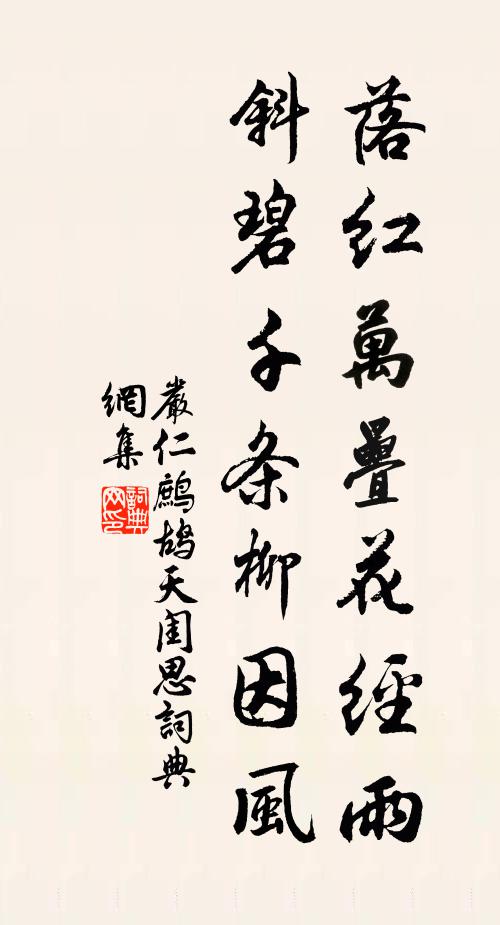 落红萬疊花經雨
斜碧千条柳因風
嚴仁鷓鴣天闺思詞典
網集
詞典
网印